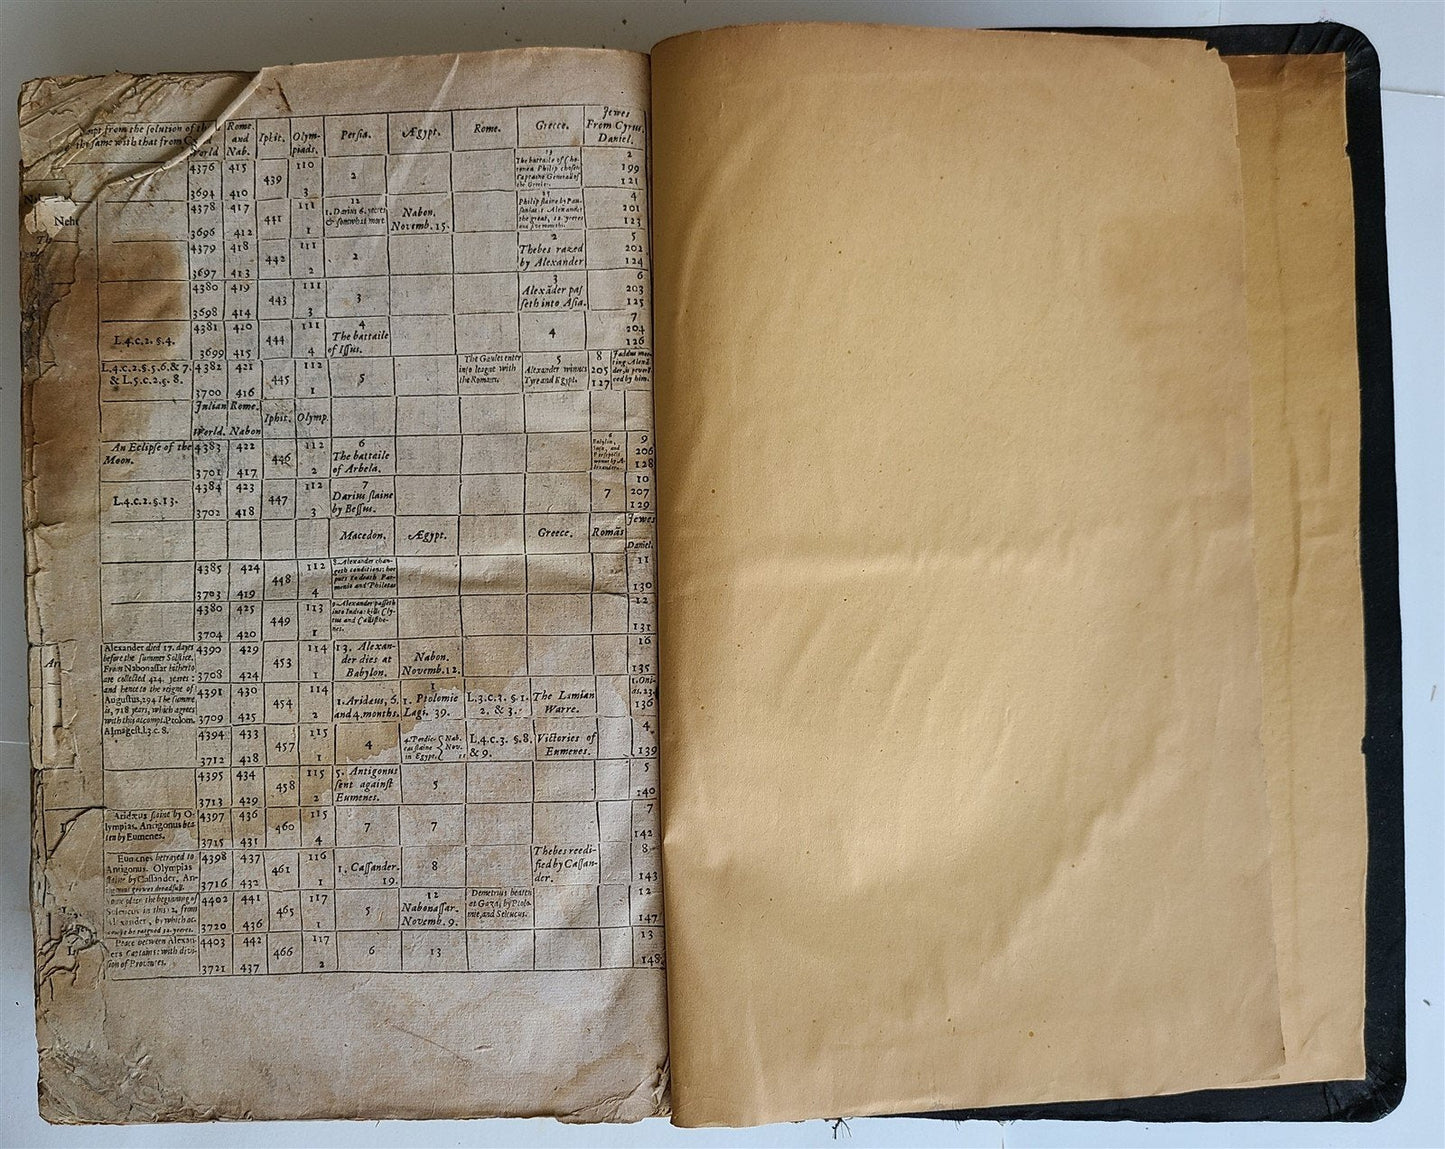 Rome
Jewes
from the solution of the
Iphit.
Olym-
Persia.
Ægypt.
Rome.
Greece.
From Cyrus.
same with that from
and
piads.
Daniel.
Nab.
4376 415
439
110
2
19
2
199
3694 410
3
121
4378 417
441
111
12
1. Darius 6. yeeres
& somwhat more
Nabon.
Novemb. 15.
Philip slaine by Pau-
sanias. 1 Alexander
the great, 12. yeeres
4
201
3696 412
1
123
Neht
4379 418
442
111
2
2
Thebes razed
by Alexander
5
202
3697 413
2
124
4380 419
443
111
3
3
Alexãder pas
seth into Asia.
6
203
3698 414
3
125
L.4.c.2. §.4.
4381 420
444
111
4
The battaile
of Issus.
4
7
204
3699 415
4
126
L.4.c.2.§.5.6.& 7.
& L.5.c.2.§. 8.
4382 421
445
112
5
The Gaules enter
into league with
the Romans.
5
Alexander winnes
Tyre and Egypt.
8
205
127
3700 416
1
Julian Rome.
Iphit. Olymp.
World. Nabon
An Eclipse of the
Moon.
4383 422
446
112
6
The battaile
of Arbela.
9
206
3701 417
2
128
L.4.c.2.§.13.
4384 423
447
112
7
Darius slaine
by Bessus.
7
10
207
3702 418
3
129
Macedon.
Ægypt.
Greece.
Romãs
Jewes
Daniel.
4385 424
448
112
8. Alexander chan-
geth conditions: hee
puts to death Par-
menio and Philotas
11
3703 419
4
130
4380 425
449
113
9. Alexander passeth
into India: kils Cly-
tus and Callisthe-
nes.
12
3704 420
1
131
Alexander died 17. dayes
before the summer Solstice.
From Nabonassar hitherto
are collected 424. yeares:
and hence to the reigne of
Augustus, 294 The summe
is, 718 years, which agrees
with this accompt. Ptolom.
Almagest.l.3 c. 8.
4390 429
453
114
13. Alexan-
der dies at
Babylon.
Nabon.
Novemb. 12.
16
3708 424
1
135
4391 430
454
114
1. Aridæus, 6.
and 4. months.
1
1. Ptolomie
Lagi. 39.
L.3.c.2. §.1.
2. & 3.
The Lamian
Warre.
136
3709 425
2
4394 433
457
115
4
L.4.c.3. §.8.
& 9.
Victories of
Eumenes.
4
3712 428
1
139
4395 434
458
115
5. Antigonus
sent against
Eumenes.
5
5
3713 429
2
140
Aridæus slaine by O-
lympias. Antigonus bea
ten by Eumenes.
4397 436
460
115
7
7
7
3715 431
4
142
Eumenes betrayed to
Antigonus. Olympias
slaine by Cassander. An-
tigonus growes dreadfull.
4398 437
461
116
1. Cassander.
19.
8
Thebes reedi-
fied by Cassan-
der.
8
3716 432
1
143
Some place the beginning of
Seleucus in this 12. from
Alexander, by which ac-
4402 441
465
117
5
12
Nabonassar.
Novemb. 9.
Demetrius beaten
at Gaza, by Ptolo-
mie, and Seleucus.
12
3720 436
1
147
Peace between Alexan-
ders Captains: with divi-
sion of Provinces.
4403 442
466
117
6
13
13
3721 437
2
148